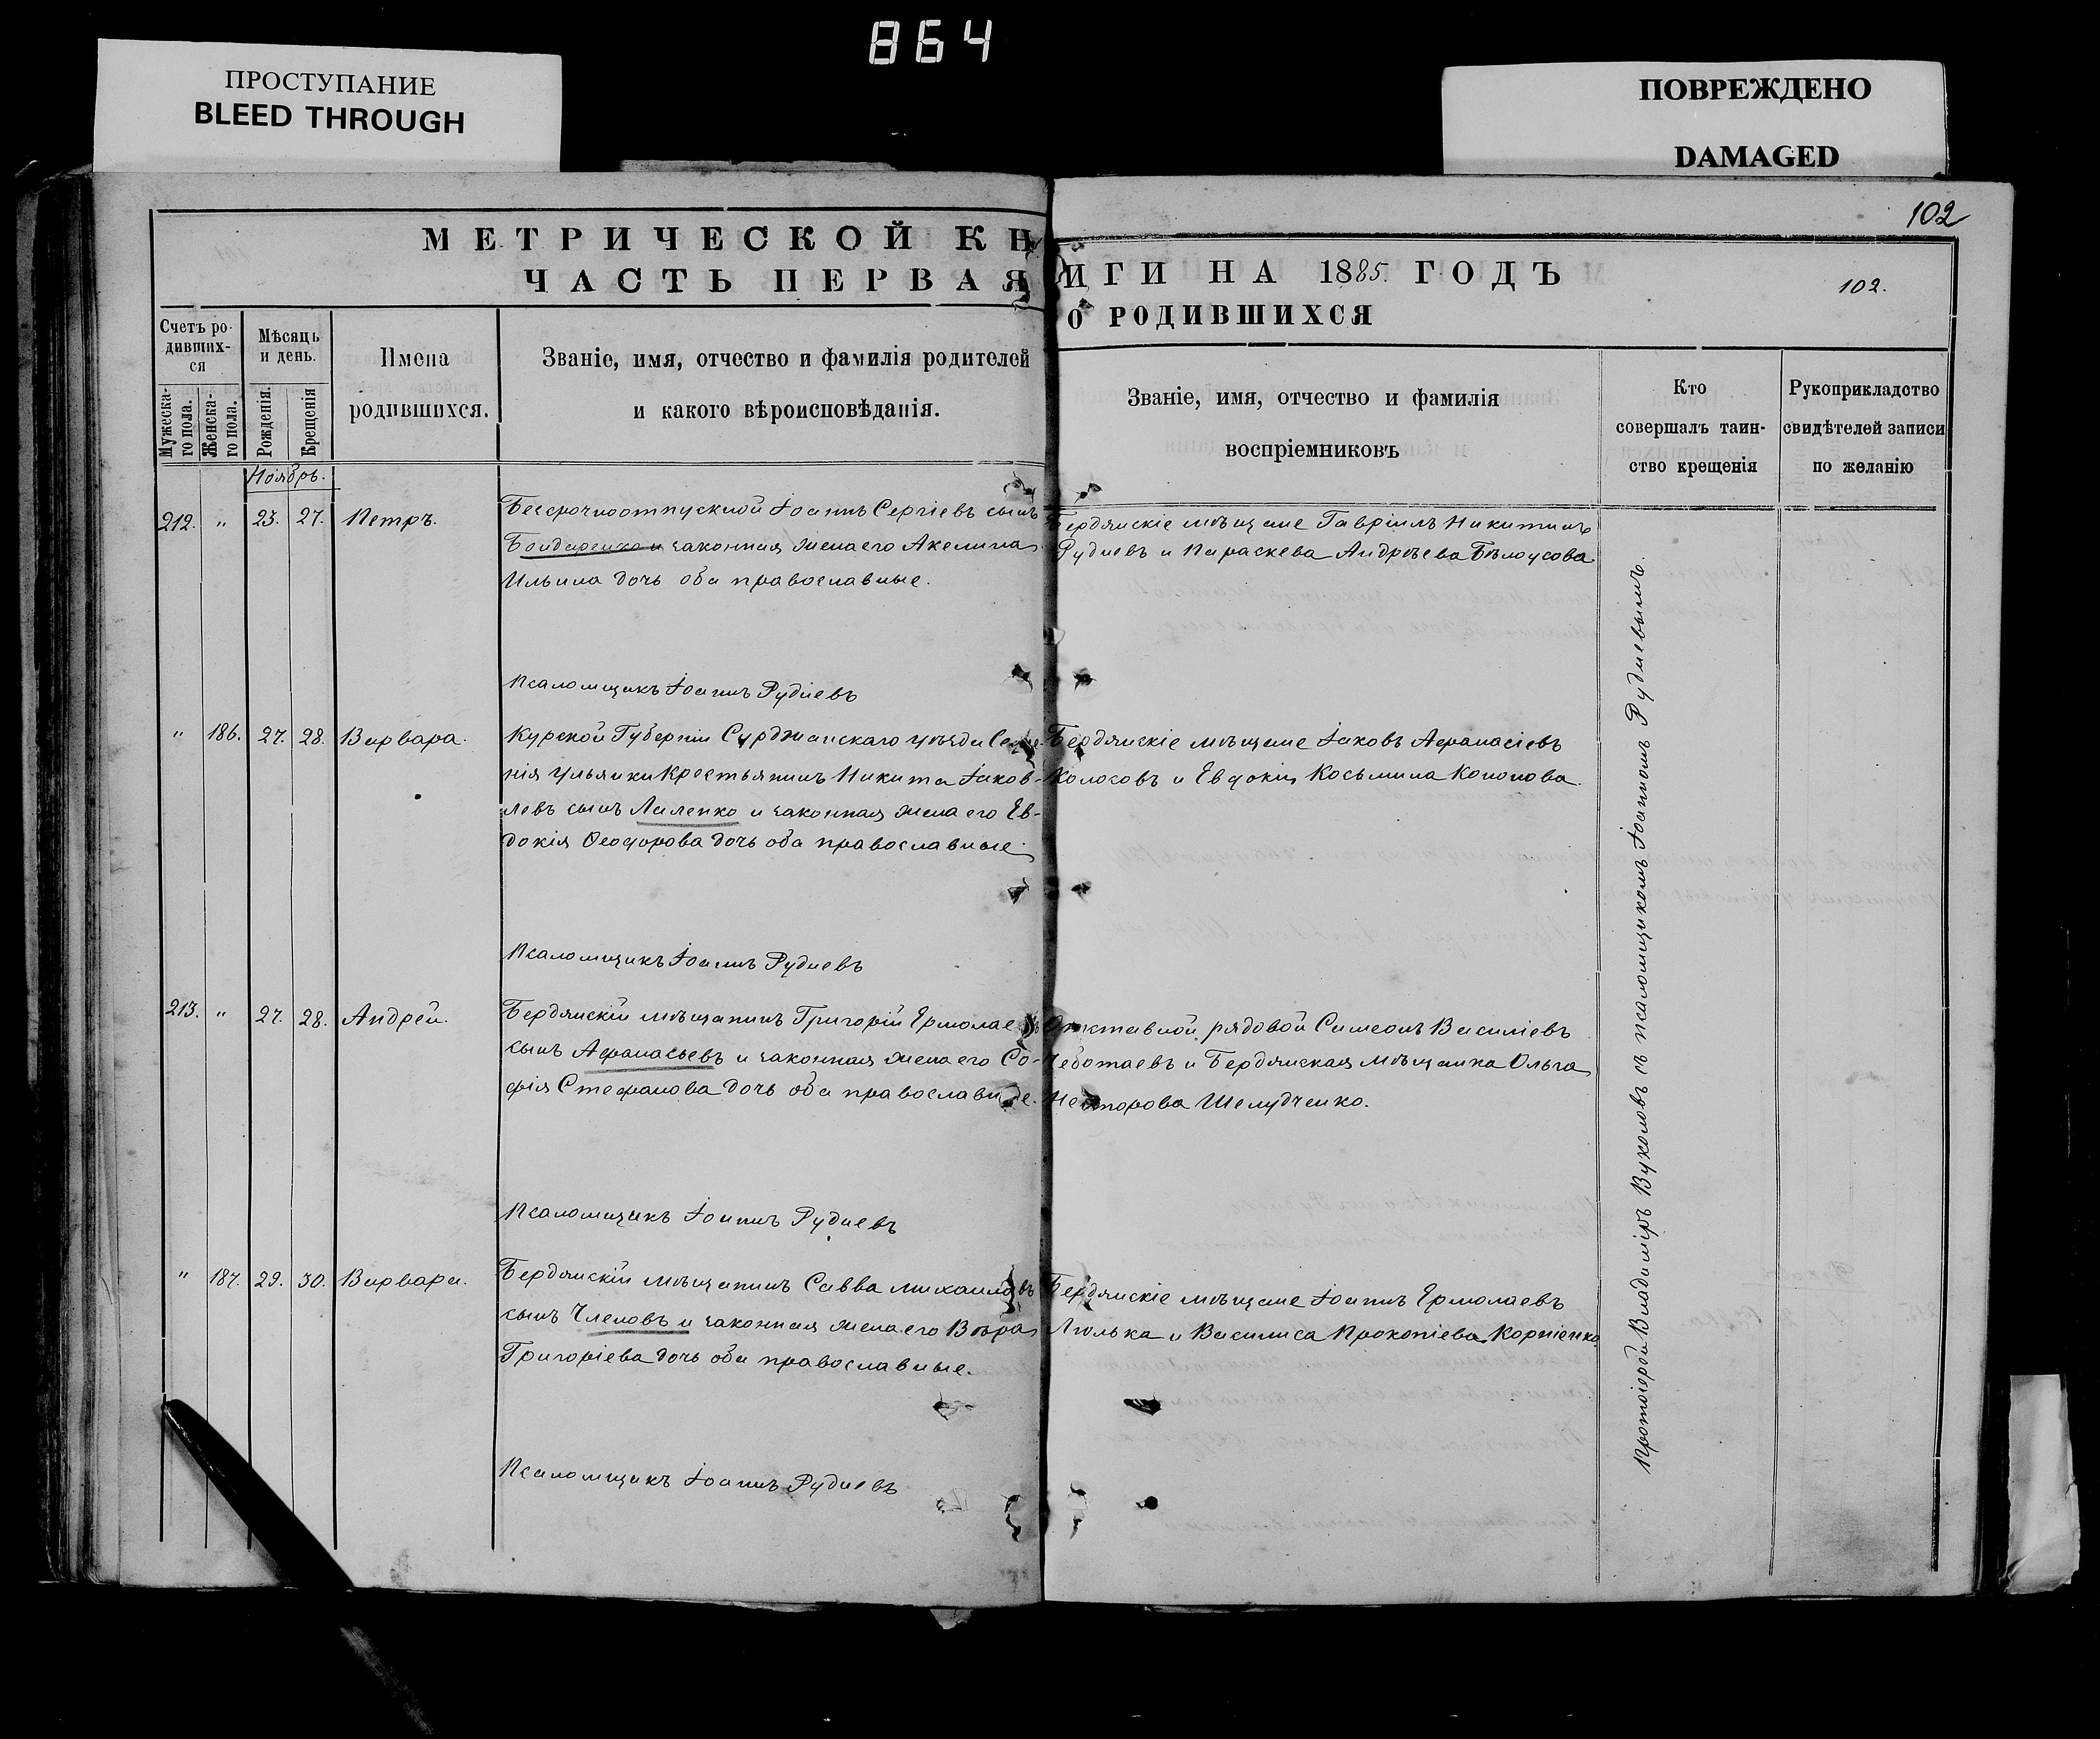 864
ПРОСТУПАНИЕ
BLEED THROUGH
ПОВРЕЖДЕНО
DAMAGED
102
МЕТРИЧЕСКОЙ КН
ИГИ НА 1885. ГОДЪ
102.
ЧАСТЬ ПЕРВАЯ
О РОДИВШИХСЯ
Счетъ ро-
дивших-
ся
Мужеска-
го пола.
Женска-
го пола.
Мѣсяцъ
и день.
Рожденія.
Крещенія
Имена
родившихся.
Званіе, имя, отчество и фамилія родителей
и какого вѣроисповѣданія.
Званіе, имя, отчество и фамилія
воспріемниковъ
Кто
совершалъ таин-
ство крещенія
Рукоприкладство
свидѣтелей записи
по желанію
Ноябрь.
212. " 23. 27. Петръ.
Безсрочноотпускной Іоаннъ Сергіевъ сынъ
Бондаренко и законная жена его Акелина
Ильина дочь оба православные.
Бердянскіе мѣщане Гавріилъ Никитинъ
Рудневъ и Параскева Андреева Бѣлоусова.
Псаломщикъ Іоаннъ Рудневъ
" 186. 27. 28. Варвара.
Курской Губерніи Суджанскаго уѣзда
нія Ульянки Крестьянинъ Никита Іаков-
левъ сынъ Лиленко и законная жена его Ев-
докія Ѳеодорова дочь оба православные.
Бердянскіе мѣщане Іаковъ Аѳанасіевъ
Колосовъ и Евдокія Косьмина Кононова.
Псаломщикъ Іоаннъ Рудневъ
213. " 27. 28. Андрей.
Бердянскій мѣщанинъ Григорій Ермолаевъ
сынъ Афанасьевъ и законная жена его Со-
фія Стефанова дочь оба православные.
Отставной рядовой Симеонъ Василіевъ
Чеботаевъ и Бердянская мѣщанка Ольга
Несторова Шелудченко.
Псаломщикъ Іоаннъ Рудневъ
" 187. 29. 30. Варвара.
Бердянскій мѣщанинъ Савва Михаиловъ
сынъ Членовъ и законная жена его Вѣра
Григоріева дочь оба православные.
Бердянскіе мѣщане Іоаннъ Ермолаевъ
Люлька и Василиса Прокопіева Корніенко.
Псаломщикъ Іоаннъ Рудневъ
Протоіерей Владиміръ Вуколовъ съ псаломщикомъ Іоанномъ Рудневымъ.